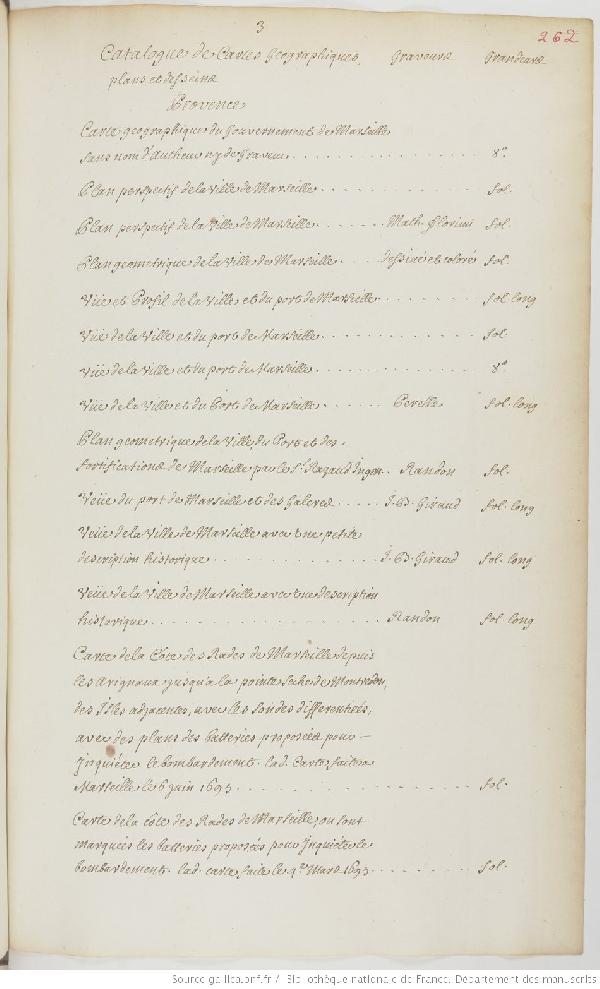 3
262
Catalogue de Cartes Geographiques, Graveurs Grandeurs
plans et desseins
Provence
Carte geographique du Gouvernement de Marseille
sans nom d'autheur ny de Graveur 8°.
Plan perspectif de la Ville de Marseille fol.
Plan perspectif de la Ville de Marseille Math. Florimi fol.
Plan geometrique de la Ville de Marseille dessiné et coloré fol.
Vüe et Profil de la Ville et du port de Marseille fol. long
Vüe de la Ville et du port de Marseille fol.
Vüe de la Ville et du port de Marseille 8°
Vüe de la Ville et du Port de Marseille Perelle fol. long
Plan geometrique de la Ville, du Port et des
fortifications de Marseille par le Sr. Razaud Ingen. Randon fol.
Veüe du port de Marseille et des Galeres J. B. Giraud fol. long
Veüe de la Ville de Marseille avec une petite
description historique J. B. Giraud fol. long
Veüe de la Ville de Marseille avec une description
historique Randon fol. long
Carte de la Côte des Rades de Marseille depuis
les Arignaux jusqu'a la pointe seche de Montredon,
des Isles adjacentes, avec les sondes differentes,
avec des plans des batteries proposées pour
Inquieter le bombardement. lad. Carte faite a
Marseille le 6 juin 1693 fol.
Carte de la côte des Rades de Marseille, ou sont
marquées les batteries proposées pour Inquieter le
bombardement. lad. carte faite le Mars 1693 fol.
Source gallica.bnf.fr / Bibliothèque nationale de France. Département des manuscrits